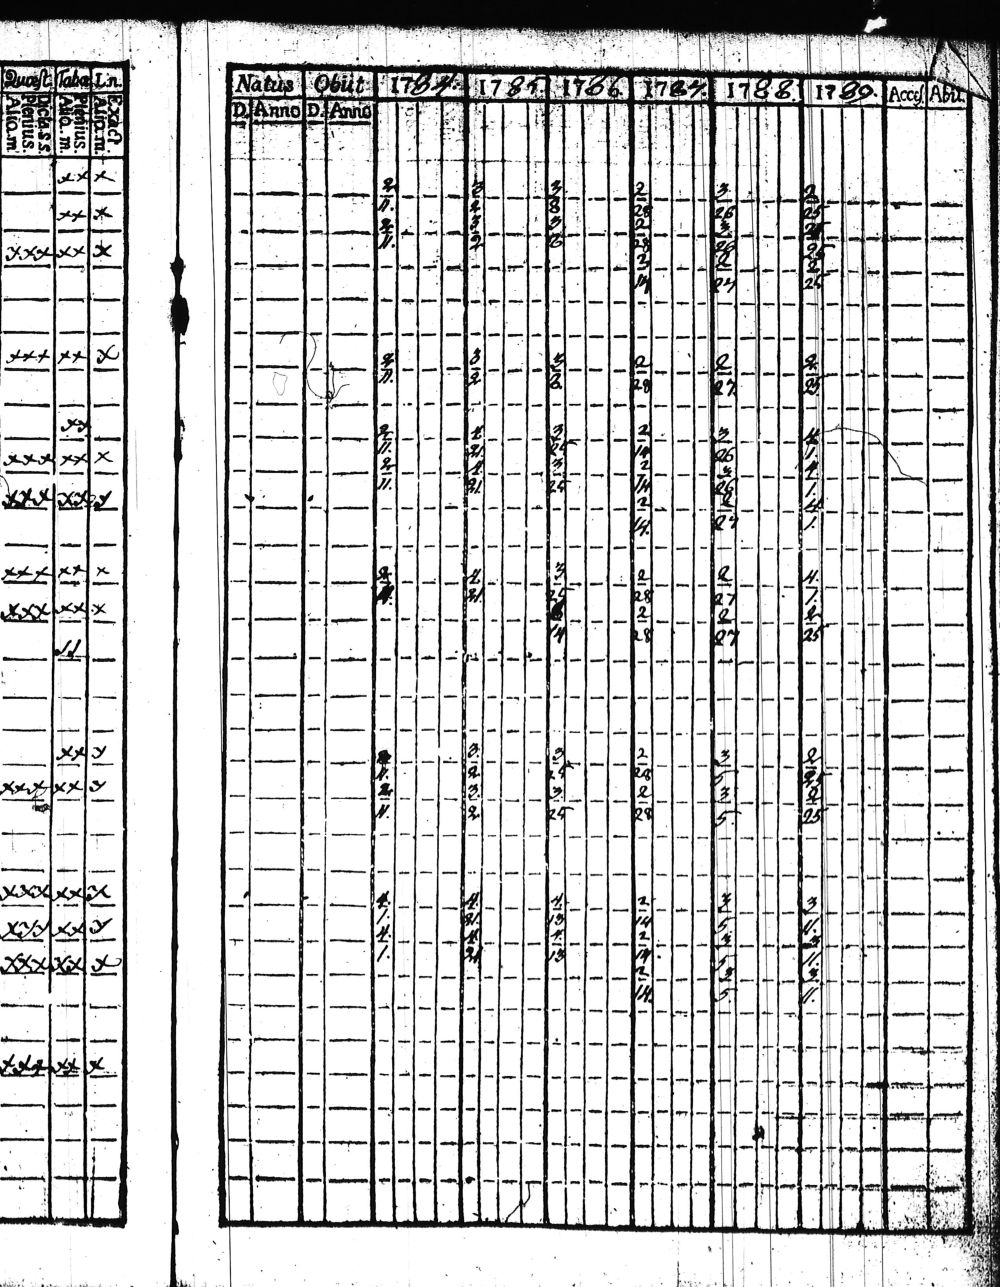 Quæst. Taba I.n.
Dicta s.s. plenius. Aliq.m. Plenius. Aliq. m. Exact Aliq. m.
Natus Obiit 1784. 1785. 1786. 1787. 1788. 1789. Access. Abit.
D. Anno D. Anno
xx x
2 3 3 2 3 2
11. 2 6 28 26 25
xx x
2 3 3 2 3 2
11. 2 6 28 26 25
xxx xx x
2 2 2
14 27 25
xxx xx x
2 3 3 2 2 2
11. 2 6 28 27 25
xx
2 4 3 2 3 4
11. 21. 25 14 26 1.
xxx xx x
2 4 3 2 3 4
11. 21 25 14 26 1.
xxx xx x
2 2 4
14. 27 1.
xxx xx x
2 4. 3 2 2 4.
11. 21. 25 28 27 1.
xxx xx x
2 2 2
14 28 27 25
xx x
2 3. 3 2 3 2
11. 2 25 28 5 25
xxx xx x
2 3. 3 2 3 2
11. 2 25 28 5. 25
xxx xx x
4. 4. 4. 2 3 3
1. 21. 13 14 5. 11.
xxx xx x
4. 4. 4. 2 3 3
1. 21 13 14. 5 11.
xxx xx x
2 3 3.
14. 5. 11.
xxx xx x